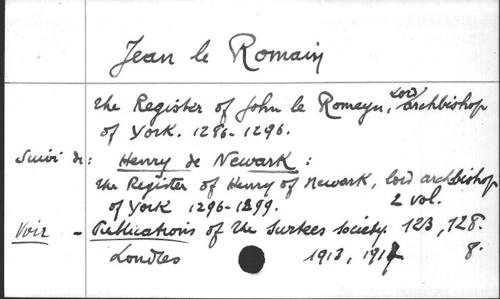 Jean le Romain
the Register of John le Romeyn, lord archbishop
of York. 1286-1296.
Suivi de: Henry de Newark:
the Register of Henry of Newark, lord archbishop
of York 1296-1299. 2 vol.
Voir - Publications of the Surtees society. 123, 128.
Londres 1913, 1917 8.